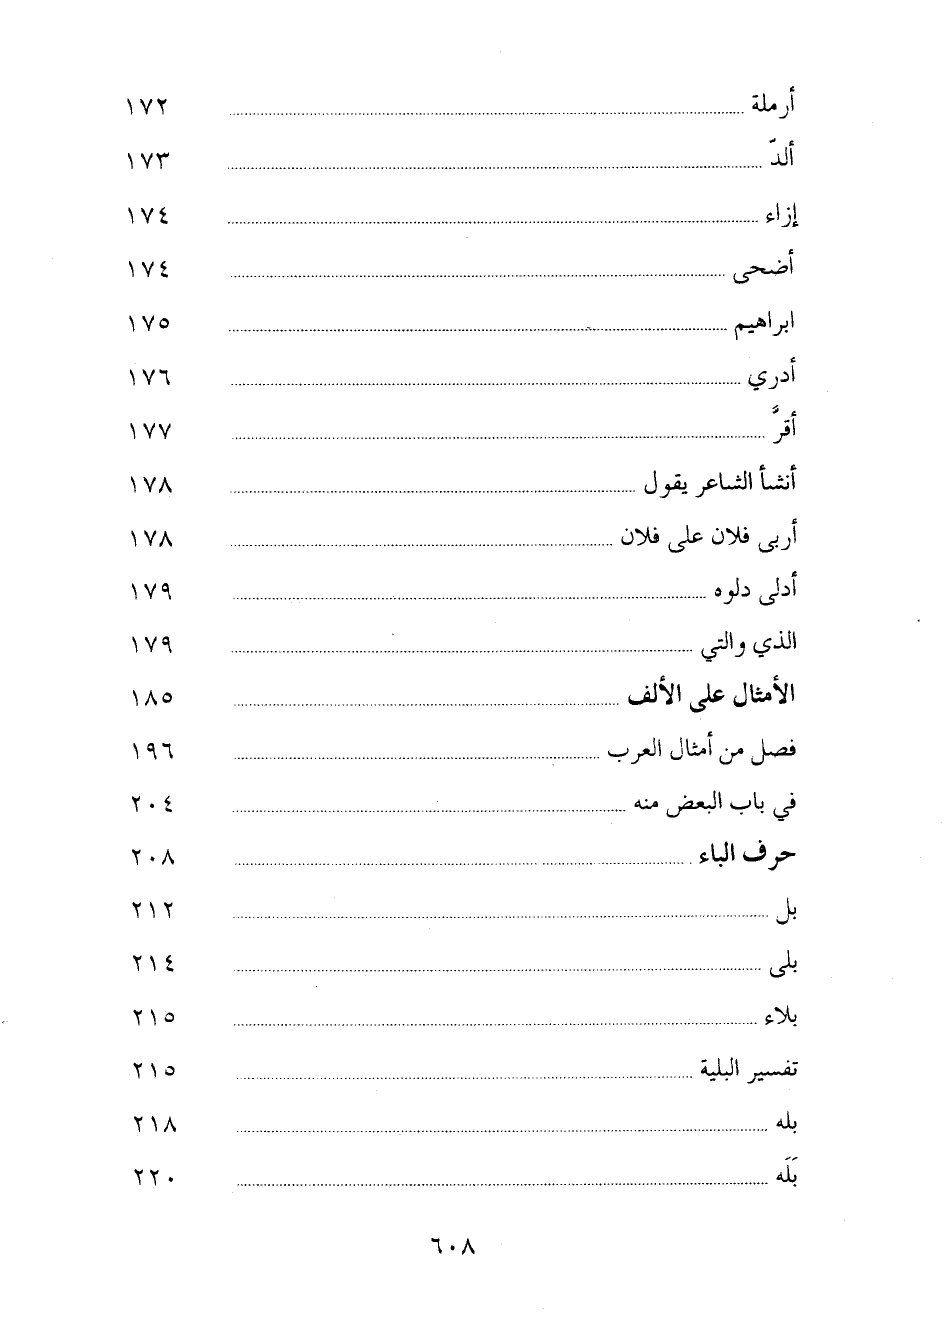 أرملة ........ ١٧٢
ألدّ ........ ١٧٣
إزاء ........ ١٧٤
أضحى ........ ١٧٤
ابراهيم ........ ١٧٥
أدري ........ ١٧٦
أقرَّ ........ ١٧٧
أنشأ الشاعر يقول ........ ١٧٨
أربى فلان على فلان ........ ١٧٨
أدلى دلوه ........ ١٧٩
الذي والتي ........ ١٧٩
الأمثال على الألف ........ ١٨٥
فصل من أمثال العرب ........ ١٩٦
في باب البعض منه ........ ٢٠٤
حرف الباء ........ ٢٠٨
بل ........ ٢١٢
بلى ........ ٢١٤
بلاء ........ ٢١٥
تفسير البلية ........ ٢١٥
بله ........ ٢١٨
بَلَه ........ ٢٢٠
٦٠٨